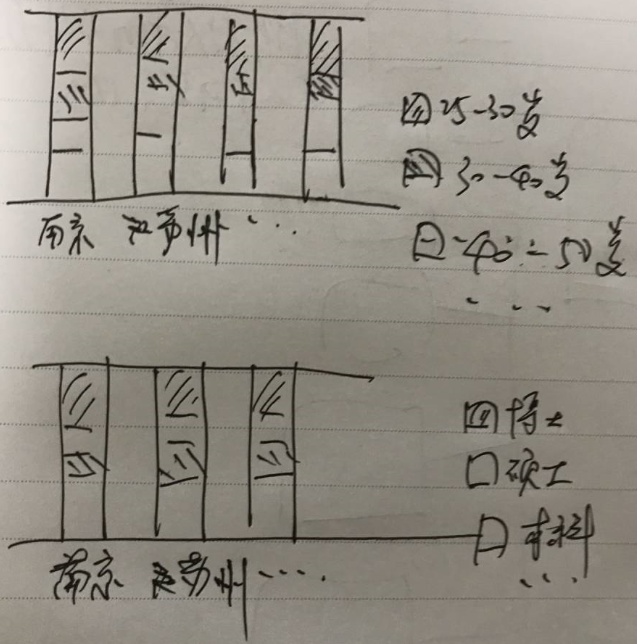 25-30岁
30-40岁
40-50岁
...
南京 苏州 ...
博士
硕士
本科
...
南京 苏州 ....